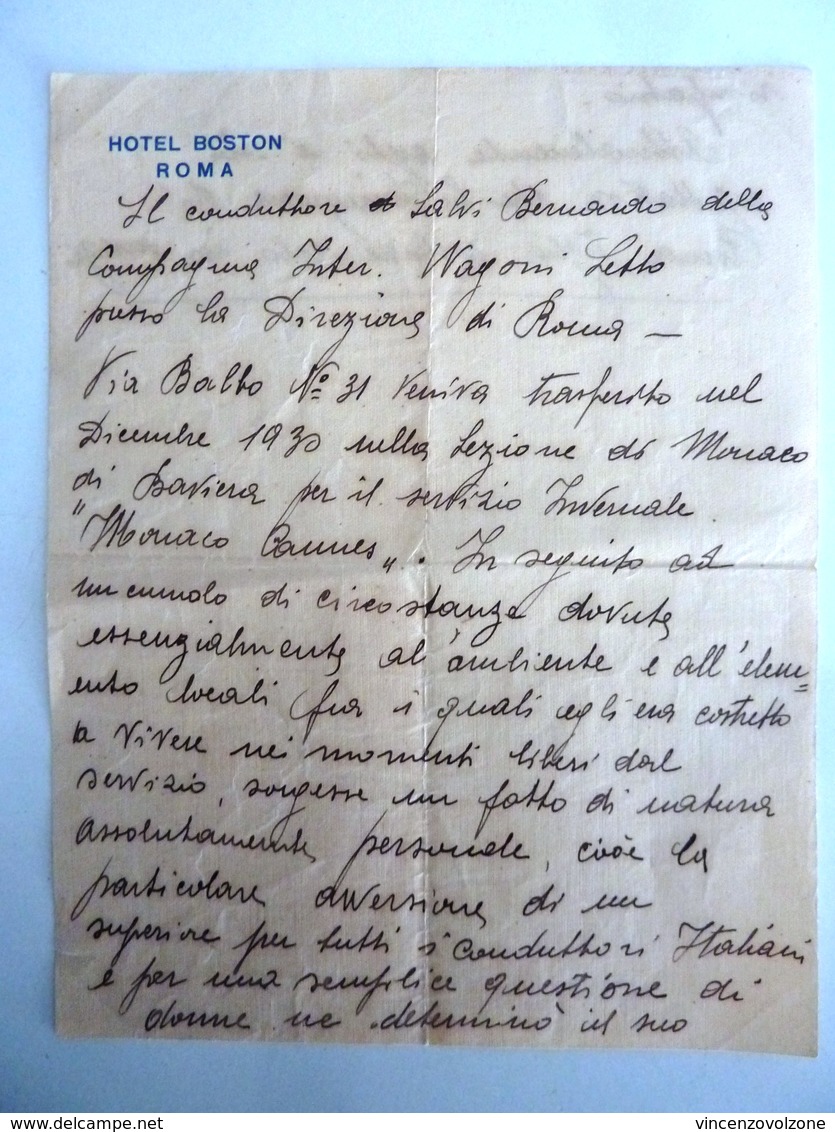 HOTEL BOSTON
ROMA
Il conduttore Salvi Bernardo della
Compagnia Inter. Wagoni Letto
presso la Direzione di Roma —
Via Balbo Nº 31 veniva trasferito nel
Dicembre 1930 nella Sezione di Monaco
di Baviera per il servizio Invernale
"Monaco Cannes„. In seguito ad
un cumolo di circostanze dovute
essenzialmente al'ambiente e all'elem=
ento locali fra i quali egli era costretto
a vivere nei momenti liberi dal
servizio, sorgesse un fatto di natura
assolutamente personale, cioè la
particolare avversione di un
superiore per tutti i conduttori Italiani
e per una semplice questione di
donne ne determinò il suo
delcampe.net
vincenzovolzone